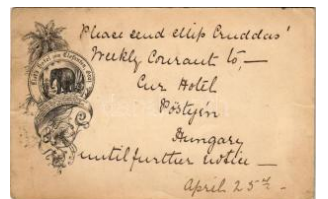 Please send Miss Cruddas'
Weekly Courant to,—
Cur Hotel
Pöstyén
Hungary
until further notice —
April 25th. -